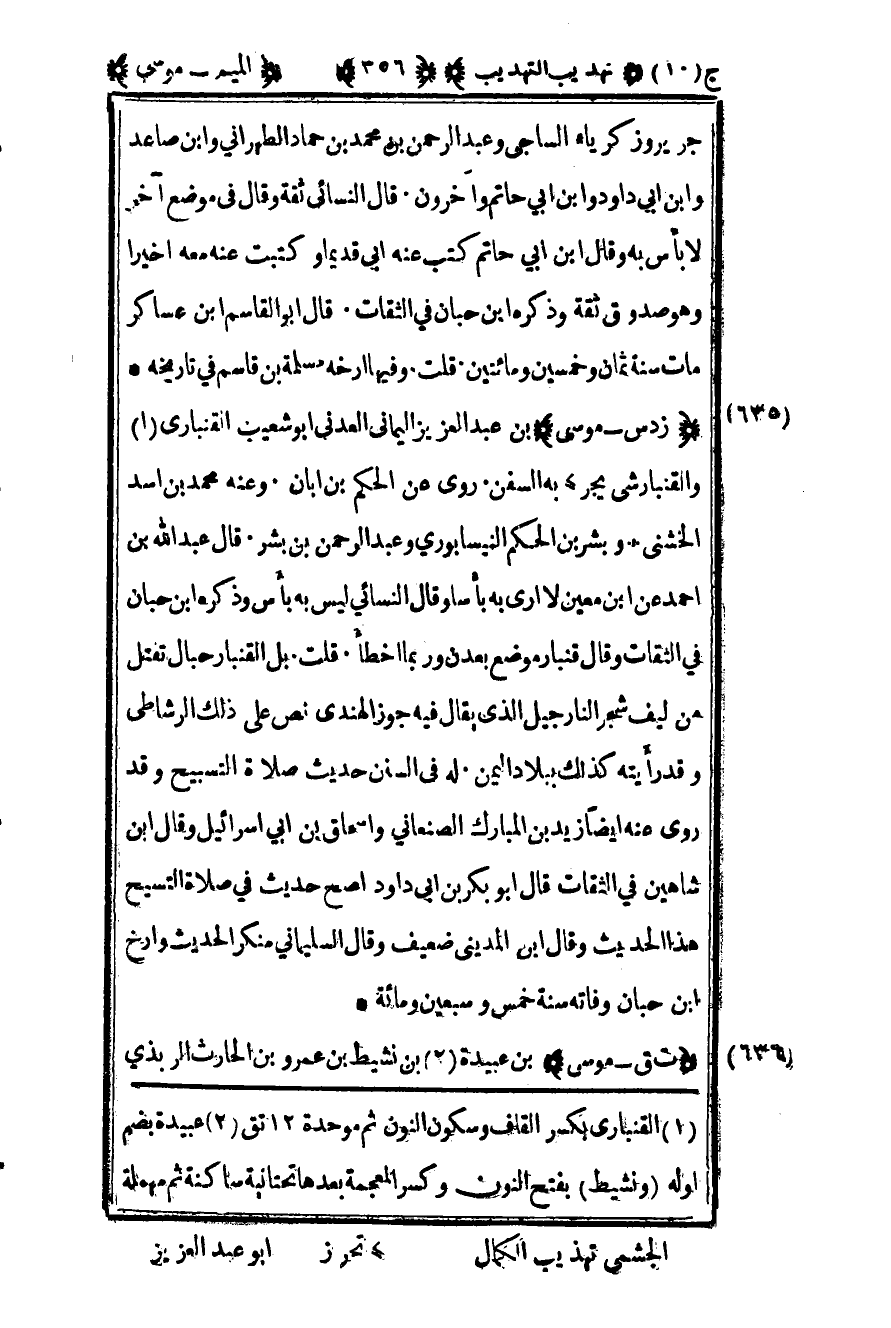 ج (١٠) تهذيب التهذيب ٣٥٦ الميم ـ موسى
جرير وزكرياء الساجى وعبد الرحمن بن محمد بن حماد الطهراني وابن صاعد
وابن ابي داود وابن ابي حاتم وآخرون ٠ قال النسائى ثقة وقال فى موضع آخر
لا بأس به وقال ابن ابي حاتم كتب عنه ابي قديما و كتبت عنه معه اخيرا
وهو صدوق ثقة وذكره ابن حبان في الثقات ٠ قال ابو القاسم ابن عساكر
مات سنة ثمان وخمسين ومائتين ٠ قلت ٠ وفيها ارخه مسلمة بن قاسم في تاريخه •
(٦٣٥)
زدس ـ موسى بن عبد العزيز اليمانى العدنى ابو شعيب القنبارى (١)
والقنبار شى يجر ٤ به السفن ٠ روى عن الحكم بن ابان ٠ وعنه محمد بن اسد
الخشنى + و بشر بن الحكم النيسابوري وعبد الرحمن بن بشر ٠ قال عبد الله بن
احمد عن ابن معين لا ارى به بأسا وقال النسائي ليس به بأس وذكره ابن حبان
في الثقات وقال قنبار موضع بعدن وربما اخطأ ٠ قلت ٠ بل القنبار حبال تفتل
من ليف شجر النارجيل الذى يقال فيه جوز الهندى نص على ذلك الرشاطى
و قد رأيته كذلك ببلاد اليمن ٠ له فى السنن حديث صلاة التسبيح و قد
روى عنه ايضاً زيد بن المبارك الصنعاني واسحاق بن ابي اسرائيل وقال ابن
شاهين في الثقات قال ابو بكر بن ابى داود اصح حديث في صلاة التسبيح
هذا الحديث وقال ابن المدينى ضعيف وقال السليماني منكر الحديث وارخ
ابن حبان وفاته سنة خمس و سبعين ومائة •
(٦٣٦)
ت ق ـ موسى بن عبيدة (٢) بن نشيط بن عمرو بن الحارث الربذي
(١) القنبارى بكسر القاف وسكون النون ثم موحدة ١٢ تق (٢) عبيدة بضم
اوله (ونشيط) بفتح النون و كسر المعجمة بعدها تحتانية ساكنة ثم مهملة
الجشمى تهذيب الكمال ٤ تحرز ابو عبد العزيز